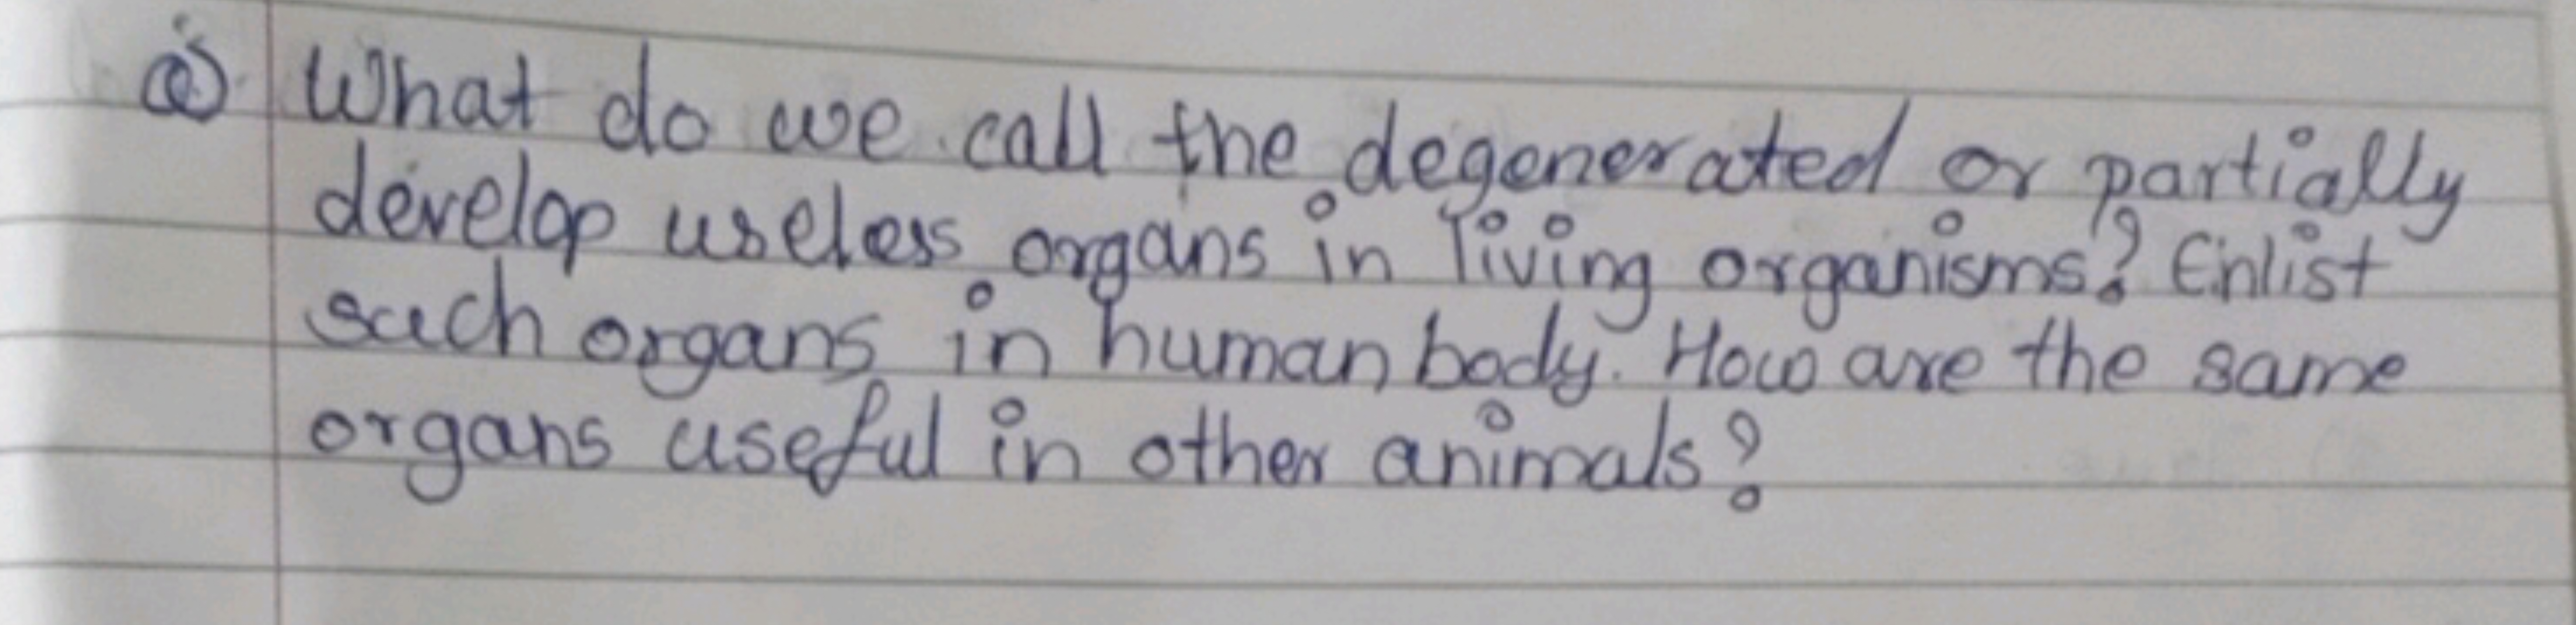 a) What do we call the degenerated or partially
develop useless organs in living organisms? Enlist
such organs in human body. How are the same
organs useful in other animals?